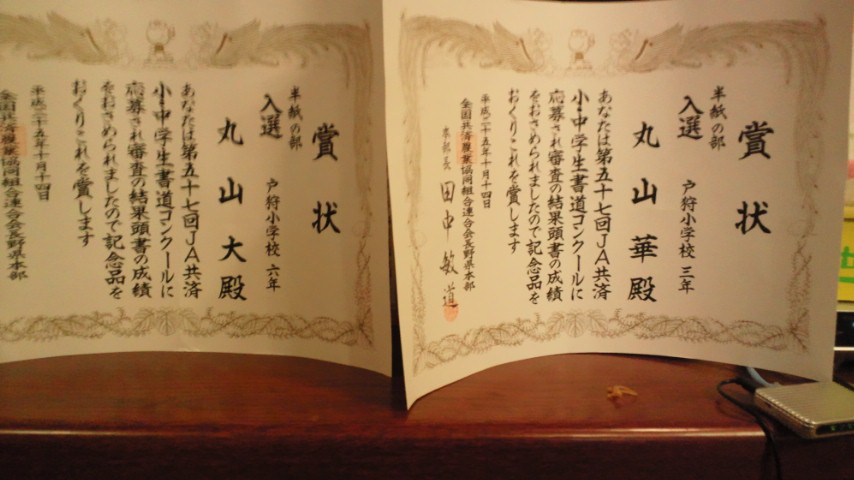 賞状
半紙の部
入選 戸狩小学校 三年
丸山華殿
あなたは第五十七回JA共済
小・中学生書道コンクールに
応募され審査の結果頭書の成績
をおさめられましたので記念品を
おくりこれを賞します
平成二十五年十月十四日
全国共済農業協同組合連合会長野県本部
本部長 田中敏道
賞状
半紙の部
入選 戸狩小学校 六年
丸山大殿
あなたは第五十七回JA共済
小・中学生書道コンクールに
応募され審査の結果頭書の成績
をおさめられましたので記念品を
おくりこれを賞します
平成二十五年十月十四日
全国共済農業協同組合連合会長野県本部